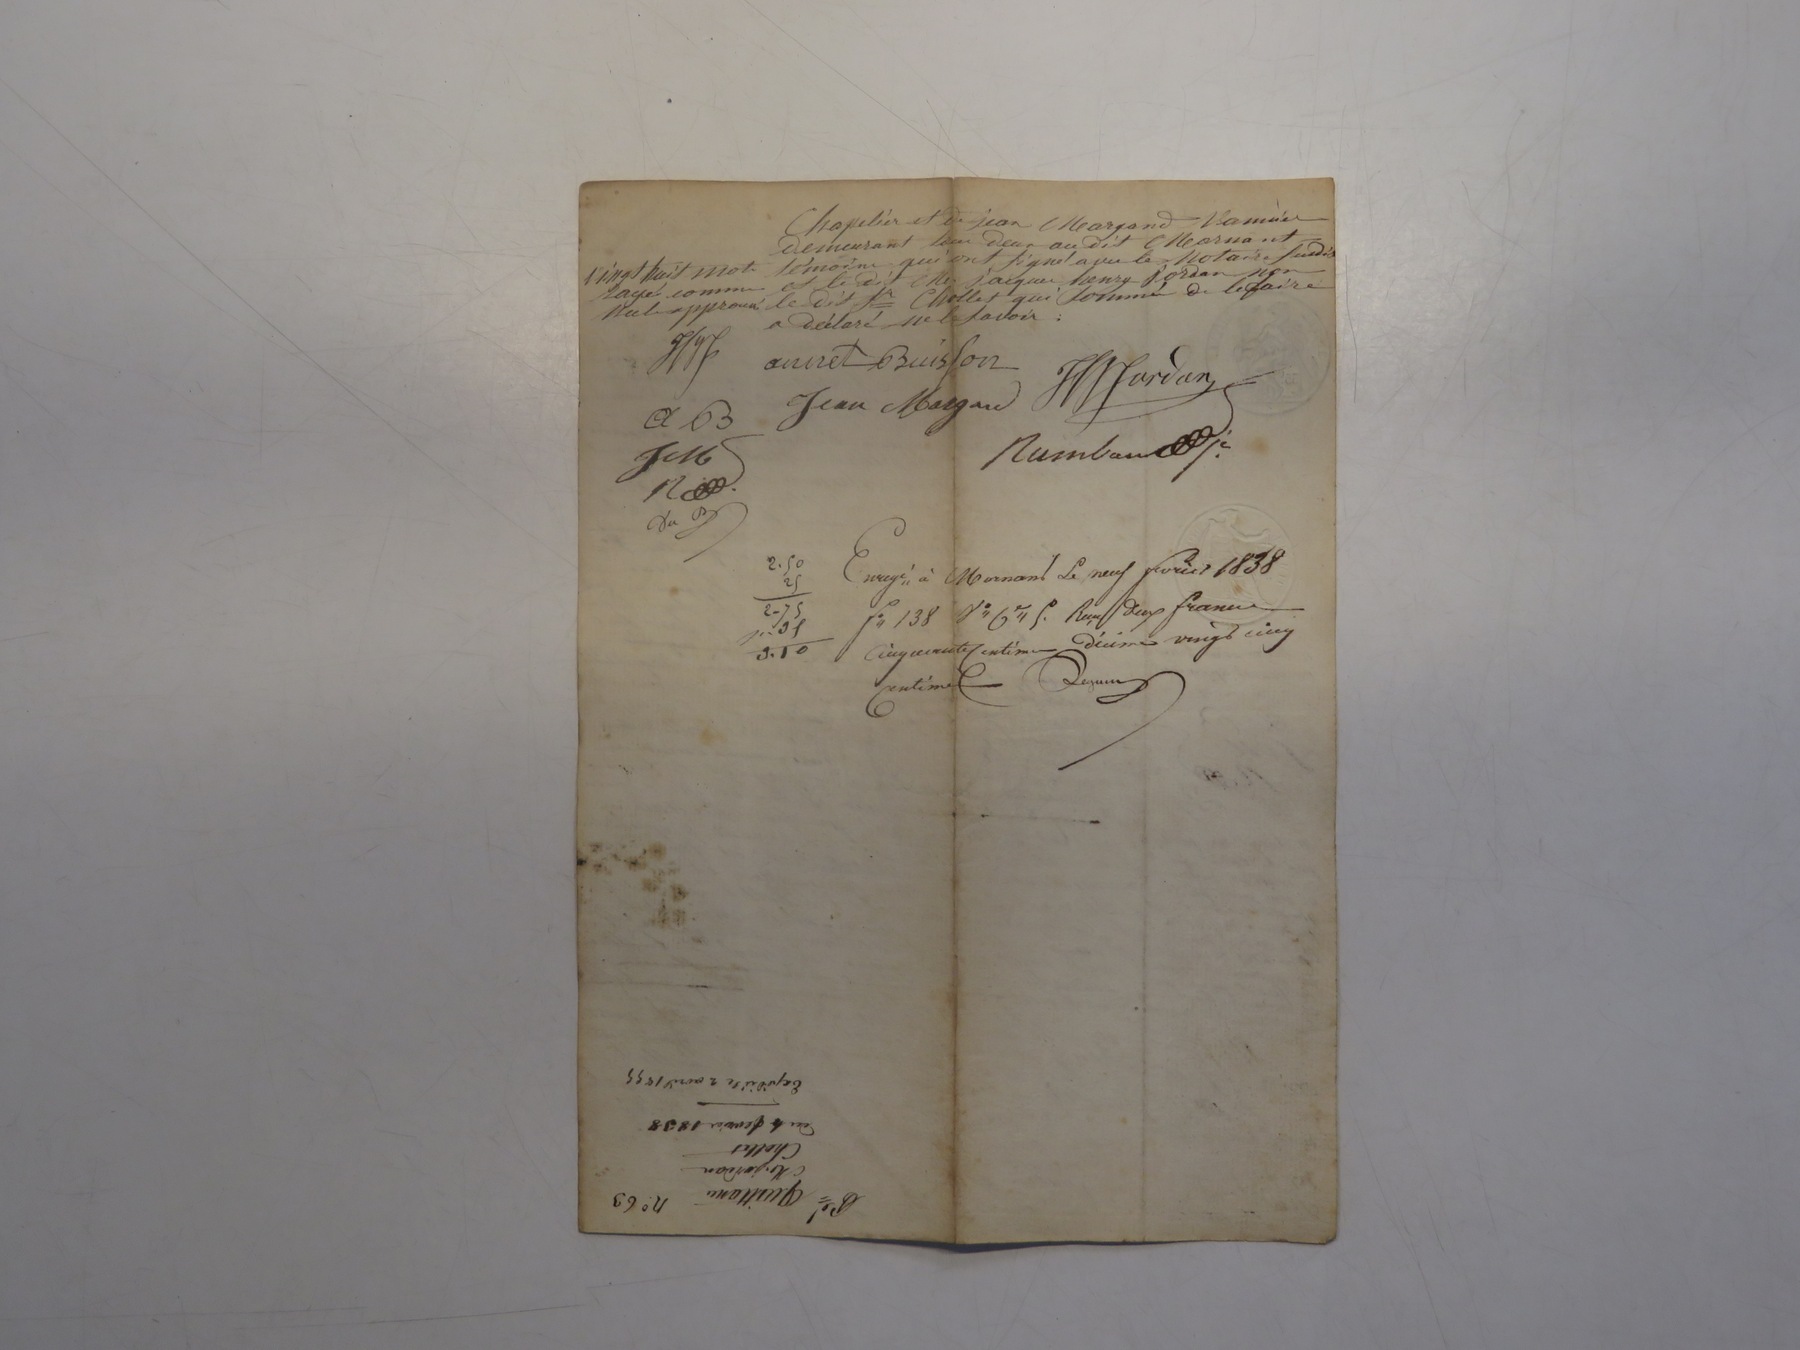 Chapelier et de jean Margand Vannier
demeurant tous deux au dit Mornant
témoins qui ont signé avec le Notaire susdit
et le dit Me jacque henry jordan non
le dit Sr Chollet qui sommé de le faire
a déclaré ne le savoir :
vingt huit mots
rayés comme
nuls approuvé
JHJ
annet Buisson
JHJordan
Jean Margand
A B
JM
R
Enregé à Mornant le neuf fevrier 1838
fo 138 Vo Cer 5. Reçu deux francs
cinquante centimes décime vingt cinq
centimes
2.50
25
2-75
35
3.10
no 63
Quittance
Me jordan
Chollet
Du 4 fevrier 1838
Expédié le 2 avril 1855